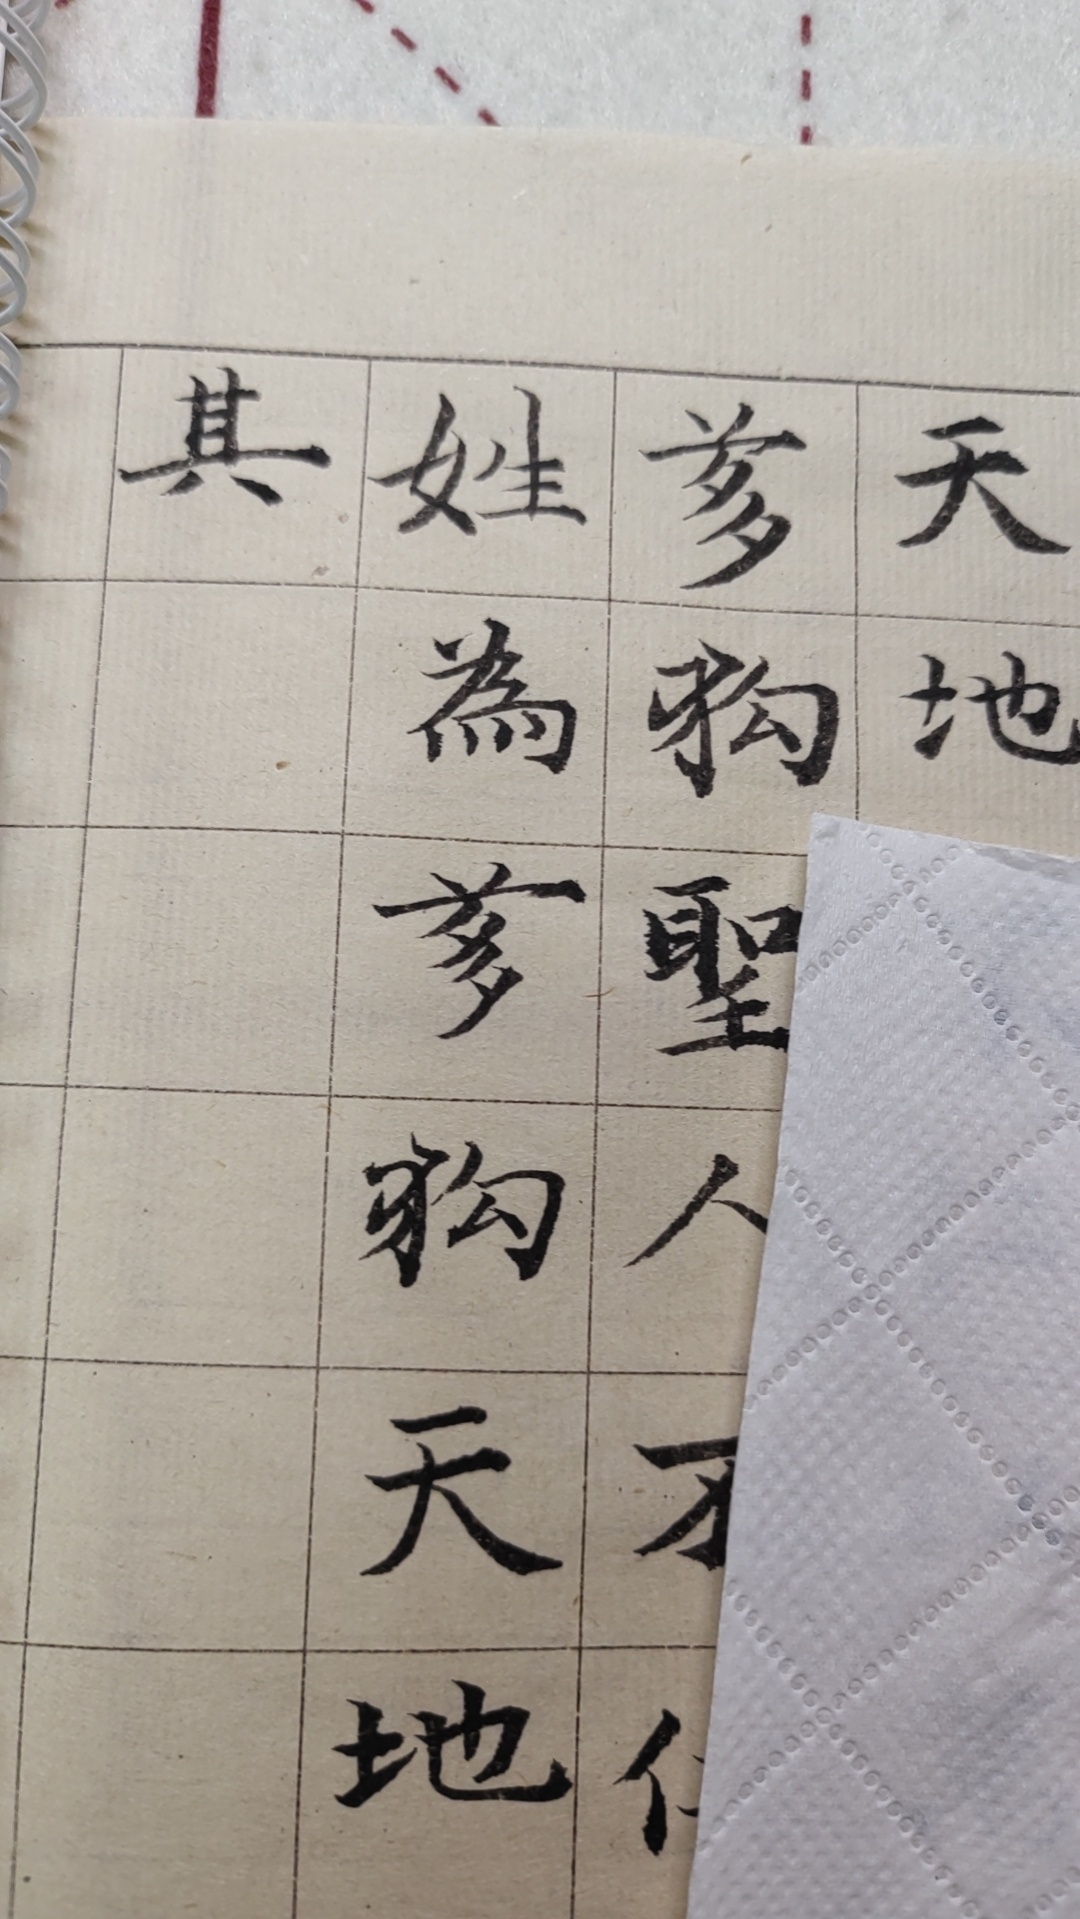 天地
芻狗聖人不
姓為芻狗天地
其